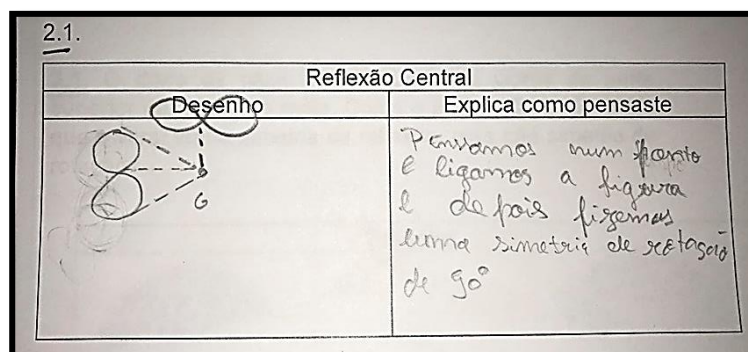 2.1.
Reflexão Central
Desenho
Explica como pensaste
G
Pensamos num ponto
e ligamos a figura
e depois fizemos
uma simetria de rotação
de 90°